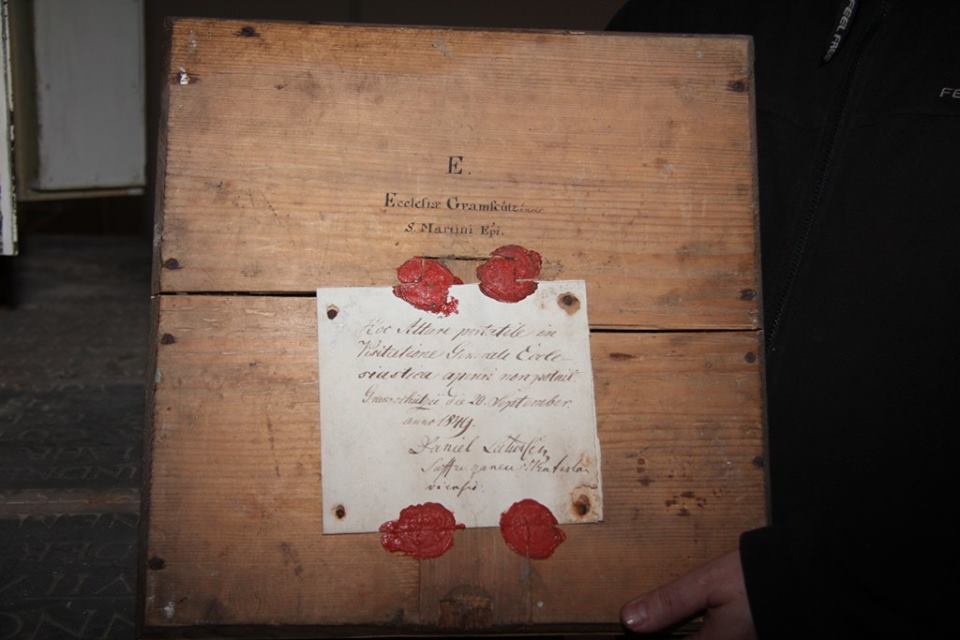 E.
Ecclesiæ Gramſcützensis
S. Martini Epi.
Hoc Altare portatile in
Visitatione Generali Eccle-
siastica aperiri non potuit.
Gramschützii die 20. September.
anno 1849.
Daniel Latussek
Suffraganeus Wratisla-
viensis.
FEEL FRE
FE